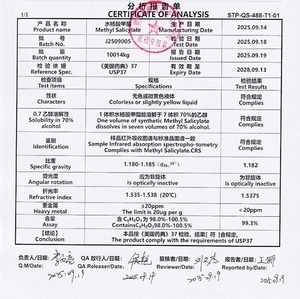 分析报告单
1/1 CERTIFICATE OF ANALYSIS STP-QS-488-T1-01
产品名称 水杨酸甲酯 生产日期 2025.09.14
Product name Methyl Salicylate Manufacturing Date
批号 J2509005 报告日期 2025.09.19
Batch No. Issued Date
批量 10014kg 报告日期 2025.09.19
Batch Quantity Report Date
检验依据 (美国药典) 37 复验期至 2028.09.13
Reference Spec. USP37 Expiry Date
检查项目 规格 检验结果
Test items Specifications Test Results
性状 无色或淡黄色液体 符合规定
Characters Colorless or slightly yellow liquid Complies
0.7 乙醇溶解性 1 体积水杨酸甲酯能溶解于 7 体积 70%的乙醇 符合规定
Solubility in 70% alcohol One volume of synthetic Methyl Salicylate dissolves in seven volumes of 70% alcohol. Complies
鉴别 样品红外吸收图谱与标准品图谱一致 符合规定
Identification Sample Infrared absorption spectrophotometry Complies with Methyl Salicylate.CRS Complies
比重 1.180-1.185 1.182
Specific gravity
旋光度 应为非旋体 为非旋体
Angular rotation Is optically inactive Is optically inactive
折光率 1.535-1.538 (20℃) 1.5375
Refractive index
重金属 ≤20ppm <20ppm
Heavy metal The limit is 20ug per g
含量 含 C₈H₈O₃ 98.0%-100.5% 99.3%
Assay Contains C₈H₈O₃ 98.0%-100.5%
【结论】 本品按《美国药典》37 检验,结果(符)合规定。
Conclusion The product comply with the requirements of USP37
负责人/日期: QA放行人/日期: 复核者/日期: 报告者/日期:
Q.M/Date: QA Releaser/Date: Reporter/Date:
2025.09.19